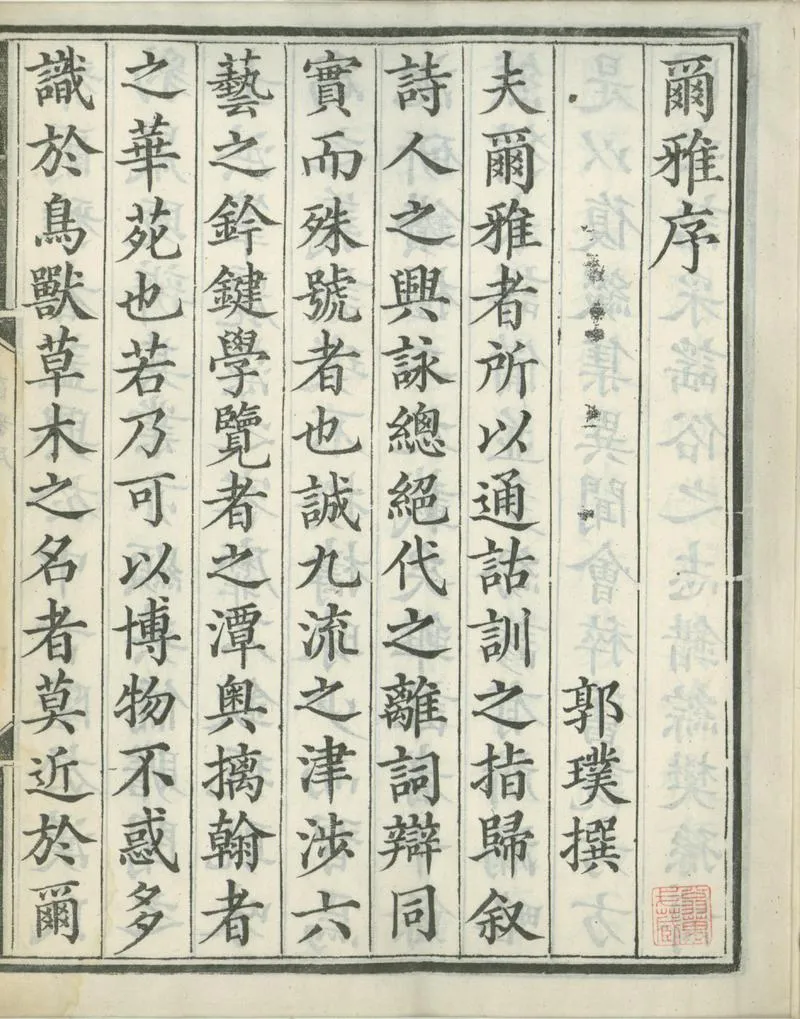 爾雅序
郭璞撰
夫爾雅者所以通詁訓之指歸叙
詩人之興詠緫絕代之離詞辯同
實而殊號者也誠九流之津涉六
藝之鈐鍵學覽者之潭奥摛翰者
之華苑也若乃可以博物不惑多
識於鳥獸草木之名者莫近於爾